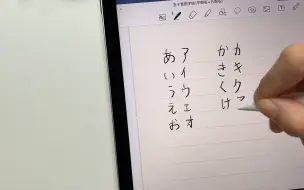 あ ア か カ
い イ き キ
う ウ く ク
え エ け
お オ